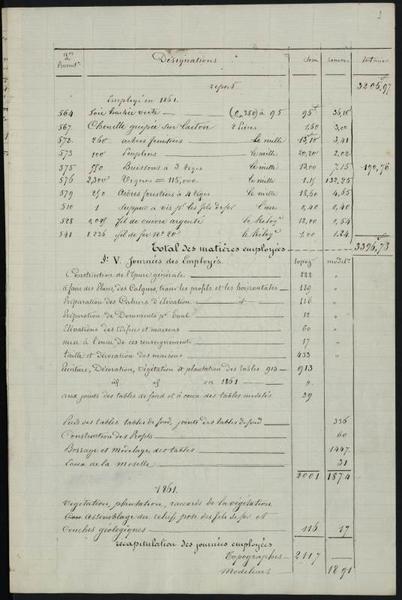 Désignations
report 3205,97
Employé en 1861.
564 Soie hachée verte (0,380) à 95 95 36,10
567 Chenille guipée sur laiton 2 pièces 1,50 3,00
572 260 arbres fruitiers le mille 3,41
573 100 Peupliers le mille 20,20 2,02
575 550 Buissons à 3 tiges le mille 13,00 7,15
576 Vignes 115,000 le mille 132,25
579 250 Arbres forestiers à 4 tiges le mille 18,60 4,65
510 1 Support à vis pr les fils de fer l'un 0,40 0,40
528 fil de cuivre argenté le kilog. 12,00 0,54
541 1 226 fil de fer No 20 le kilog. 1,00 1,24
190,76
Total des matières employées 3396,73
§ V. Journées des Employés. topog. model.
Construction de l'Épure générale 222 "
Préparation des Cahiers d'élévation 116 "
Préparation de Documents pr 12 "
Élévations des édifices et maisons 60 "
mise à l'encre de ces renseignements 17 "
taille et décoration des maisons 433 "
Peinture, Décoration, végétation et plantation des tables 913 913
id. id. en 1861 "
aux joints des tables de fond et à ceux des tables modelées 29
Pieds des tables, tables de fond, joints des tables de fond 336
Construction des Profils 60
Bossage et Modelage des tables 1447
Eaux de la Moselle 31
2001 1874
1861.
Végétation, plantation, raccords de la végétation
assemblage du relief, pose des fils de fer et
couches géologiques 116 17
Récapitulation des journées employées
Topographes 2117
Modeleurs 1891